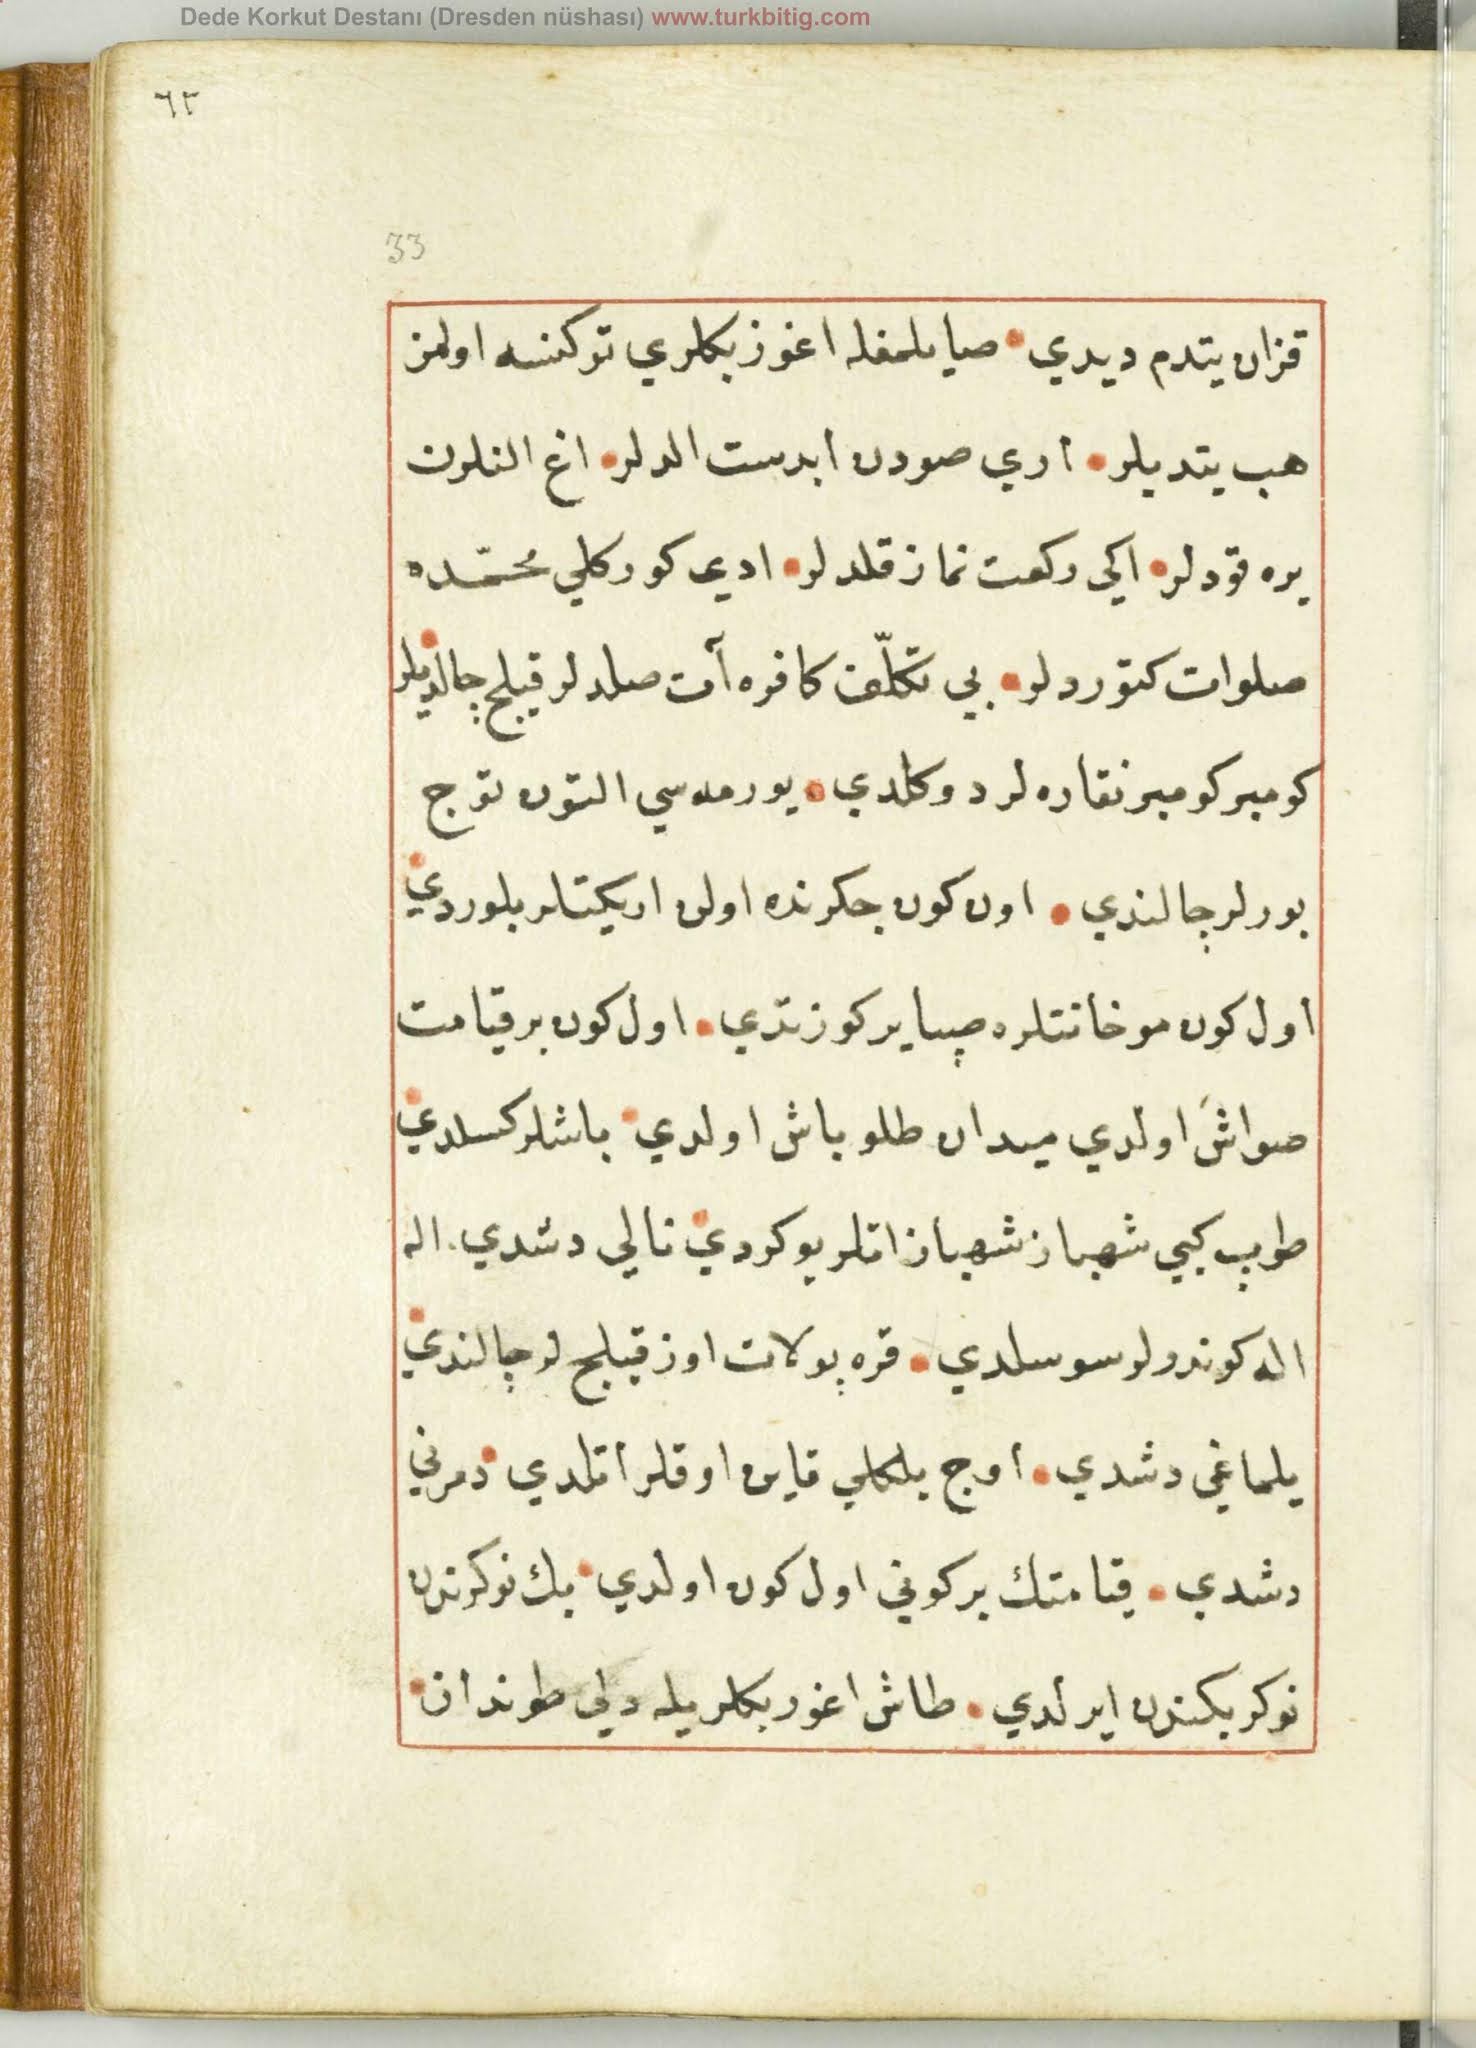 Dede Korkut Destanı (Dresden nüshası) www.turkbitig.com
٦٣
33
قزان یتدم دیدي • صیا یلمغله اغوز بكلري توكنسه اولمز
هب یتدیلر • اري صودن ابدست الدلر • اغ النلرن
یره قودلر • اكي ركعت نماز قلدلر • ادي كوركلي محمّده
صلوات كتوردلر • بي تكلّف كافره آت صلدلر قیلج چالدیلر •
كومبر كومبر نقاره لر دوكلدي • بورمه سي التون توج
بورلر چالندي • اول كون جكرنده اولن ار یكتلر بلوردي •
اول كون موخانتلره صپا یر كوزتدي • اول كون بر قیامت
صواش اولدي میدان طلو باش اولدي • باشلر كسلدي •
طوپ كبي شهباز شهباز اتلر یوكردي • نالي دشدي . اله
اله كوندرلر سوسلدي • قره پولات اوز قیلج لر چالندي •
یلماغي دشدي • اوج یلكلي قاین اوقلر اتلدي • دمرني
دشدي • قیامتك بر كوني اول كون اولدي • بك نوكرندن
نوكر بكندن ایرلدي • طاش اغوز بكلریله دلي طوندان •